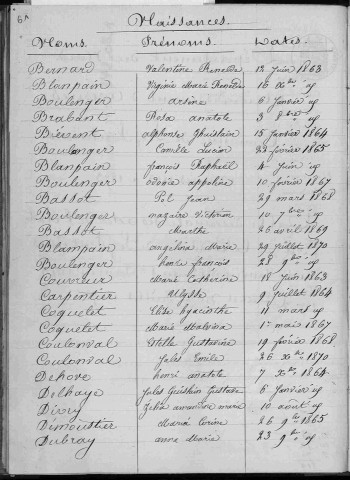 Naissances.
Noms. Prénoms. Dates
Bernard Valentine 12 Juin 1863
Blanpain Virginie Marie 16 Xbre
Boulenger arsène 6 Janvier
Brabant Rosa anatole 3 8bre
Bierent alphonse Ghuislain 15 Janvier 1864
Boulenger Camille Lucien 22 février 1865
Blanpain françois Raphaël 4 Juin
Boulenger appoline 10 février 1867
Bassot Pol Jean 29 mars 1868
Boulenger nazaire Victorien 10 7bre
Bassot Marthe 26 avril 1869
Blampain angelina Marie 29 Juillet 1870
Boulenger françois 28 9bre
Couvreur Marie Catherine 18 Juin 1863
Carpentier Ulysse 9 Juillet 1864
Coquelet Elise hyacinthe 11 mars
Coquelet Marie Malvina 1er mai 1867
Coulonval Estelle Gustavine 19 février 1868
Coulonval Jules Emile 26 Xbre 1870
Dehove henri anatole 7 Xbre 1864
Delhaye Jules Guislain Gustave 6 Janvier
Divry Zelia amandine marie 10 août
Dimoustier Maria 26 9bre 1865
Dubray anne Marie 23 9bre